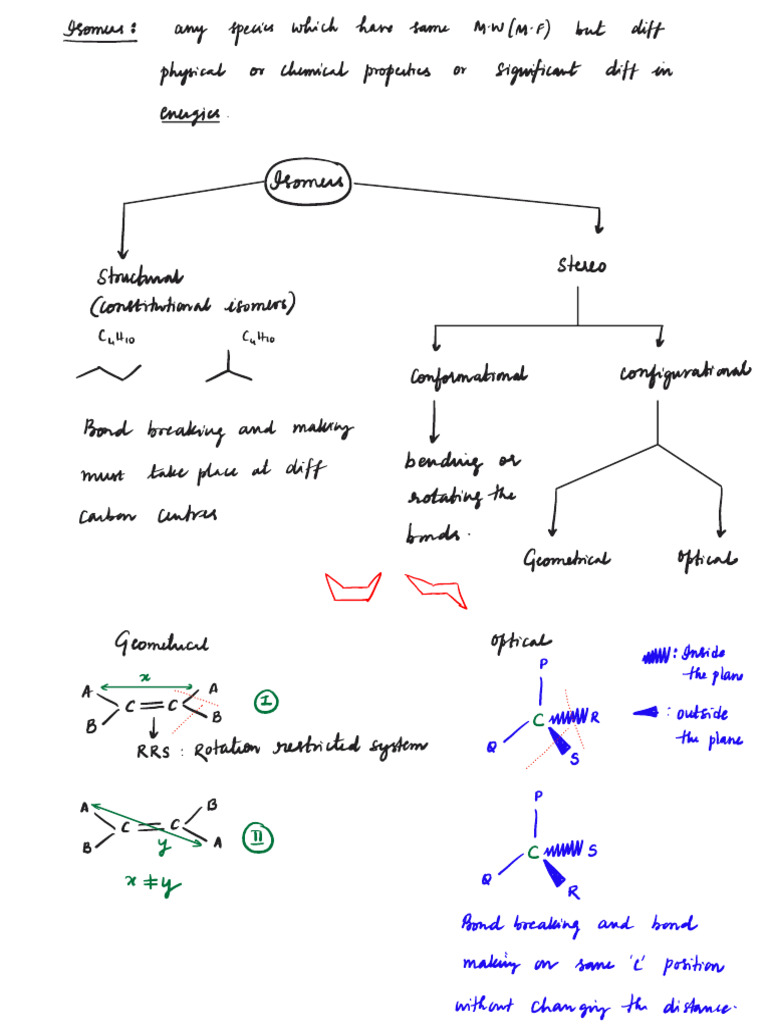 Isomers : any species which have same M.W (M.F) but diff
physical or chemical properties or significant diff in
energies.
Isomers
Structural
(constitutional isomers)
C4H10 C4H10
Bond breaking and making
must take place at diff
carbon centres
Stereo
Conformational
bending or
rotating the
bonds.
Configurational
Geometrical
Optical
Geometrical
A x A
C = C
B B
I
RRS : Rotation restricted system
A B
C = C
B y A
II
x ≠ y
Optical
P
C R
Q S
: Inside
the plane
: outside
the plane
P
C S
Q R
Bond breaking and bond
making on same 'C' position
without changing the distance.